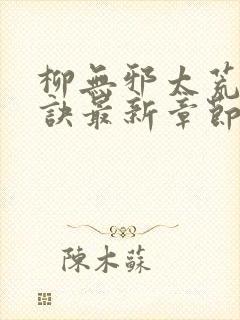 柳無邪太荒
訣最新章節
陳木蘇